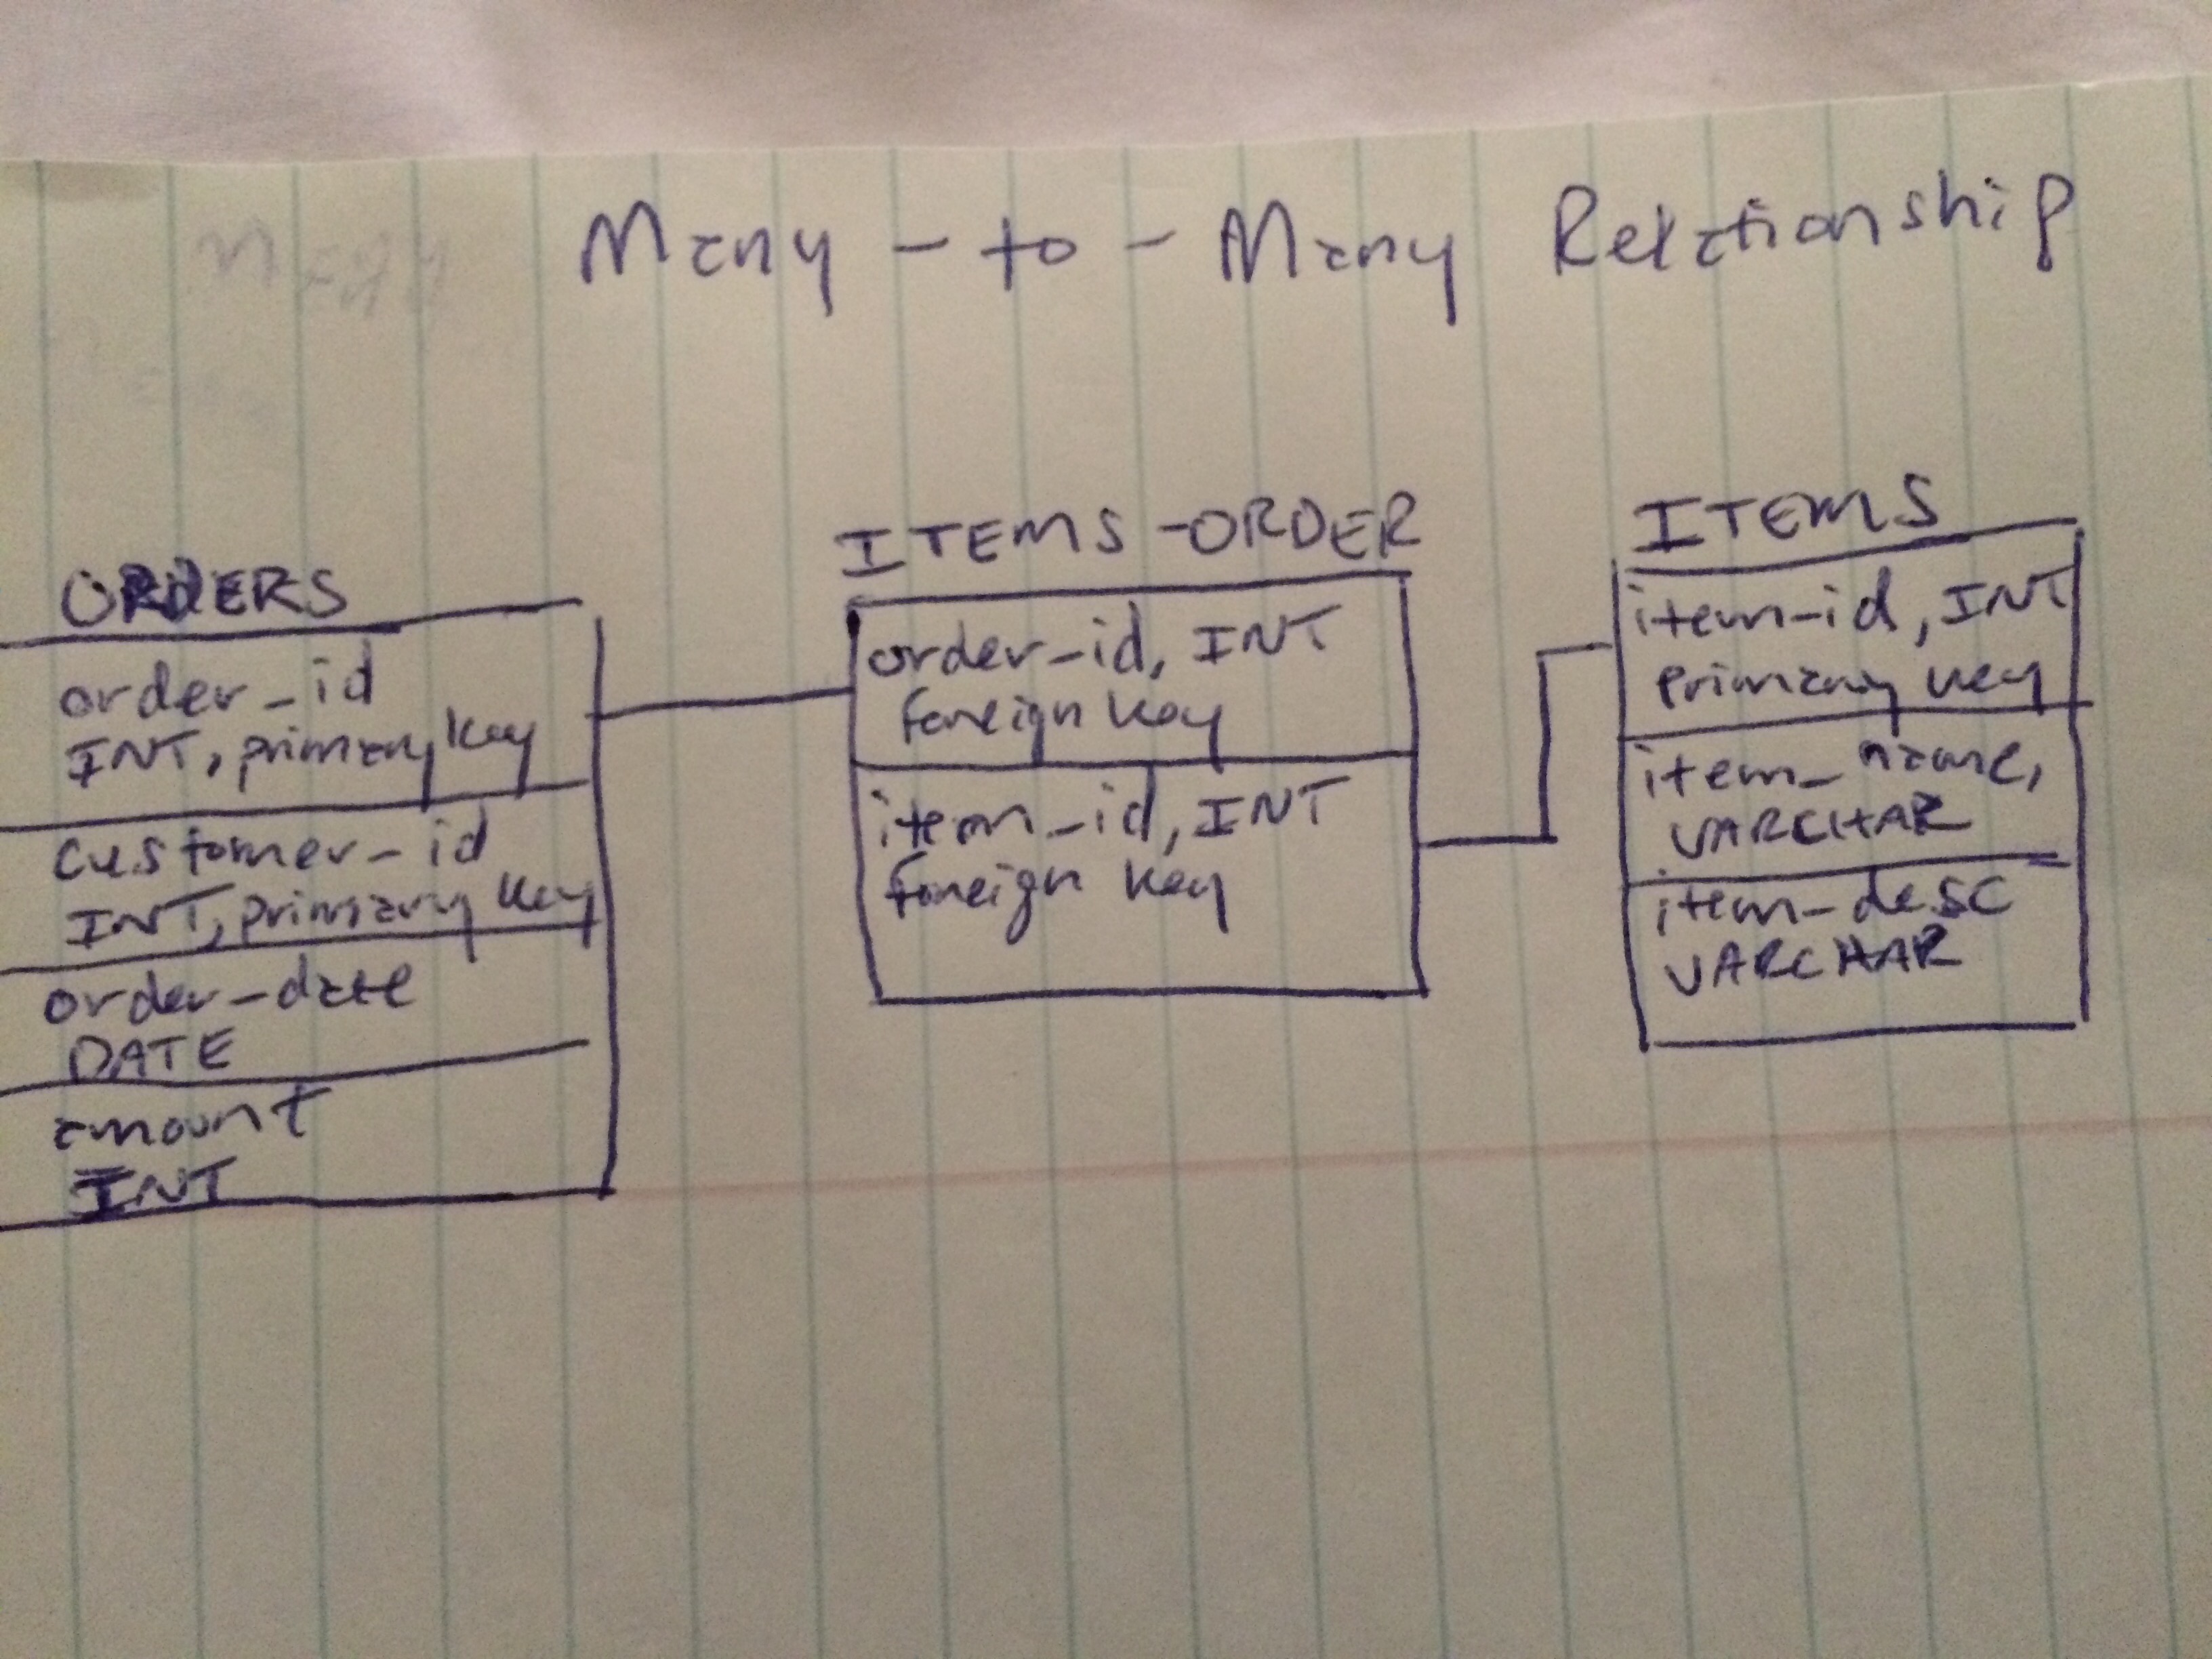 Many - to - Many Relationship
ORDERS
order_id
INT, primary key
customer-id
INT, primary key
order-date
DATE
amount
INT
ITEMS-ORDER
order-id, INT
foreign key
item-id, INT
foreign key
ITEMS
item-id, INT
primary key
item_name,
VARCHAR
item-desc
VARCHAR